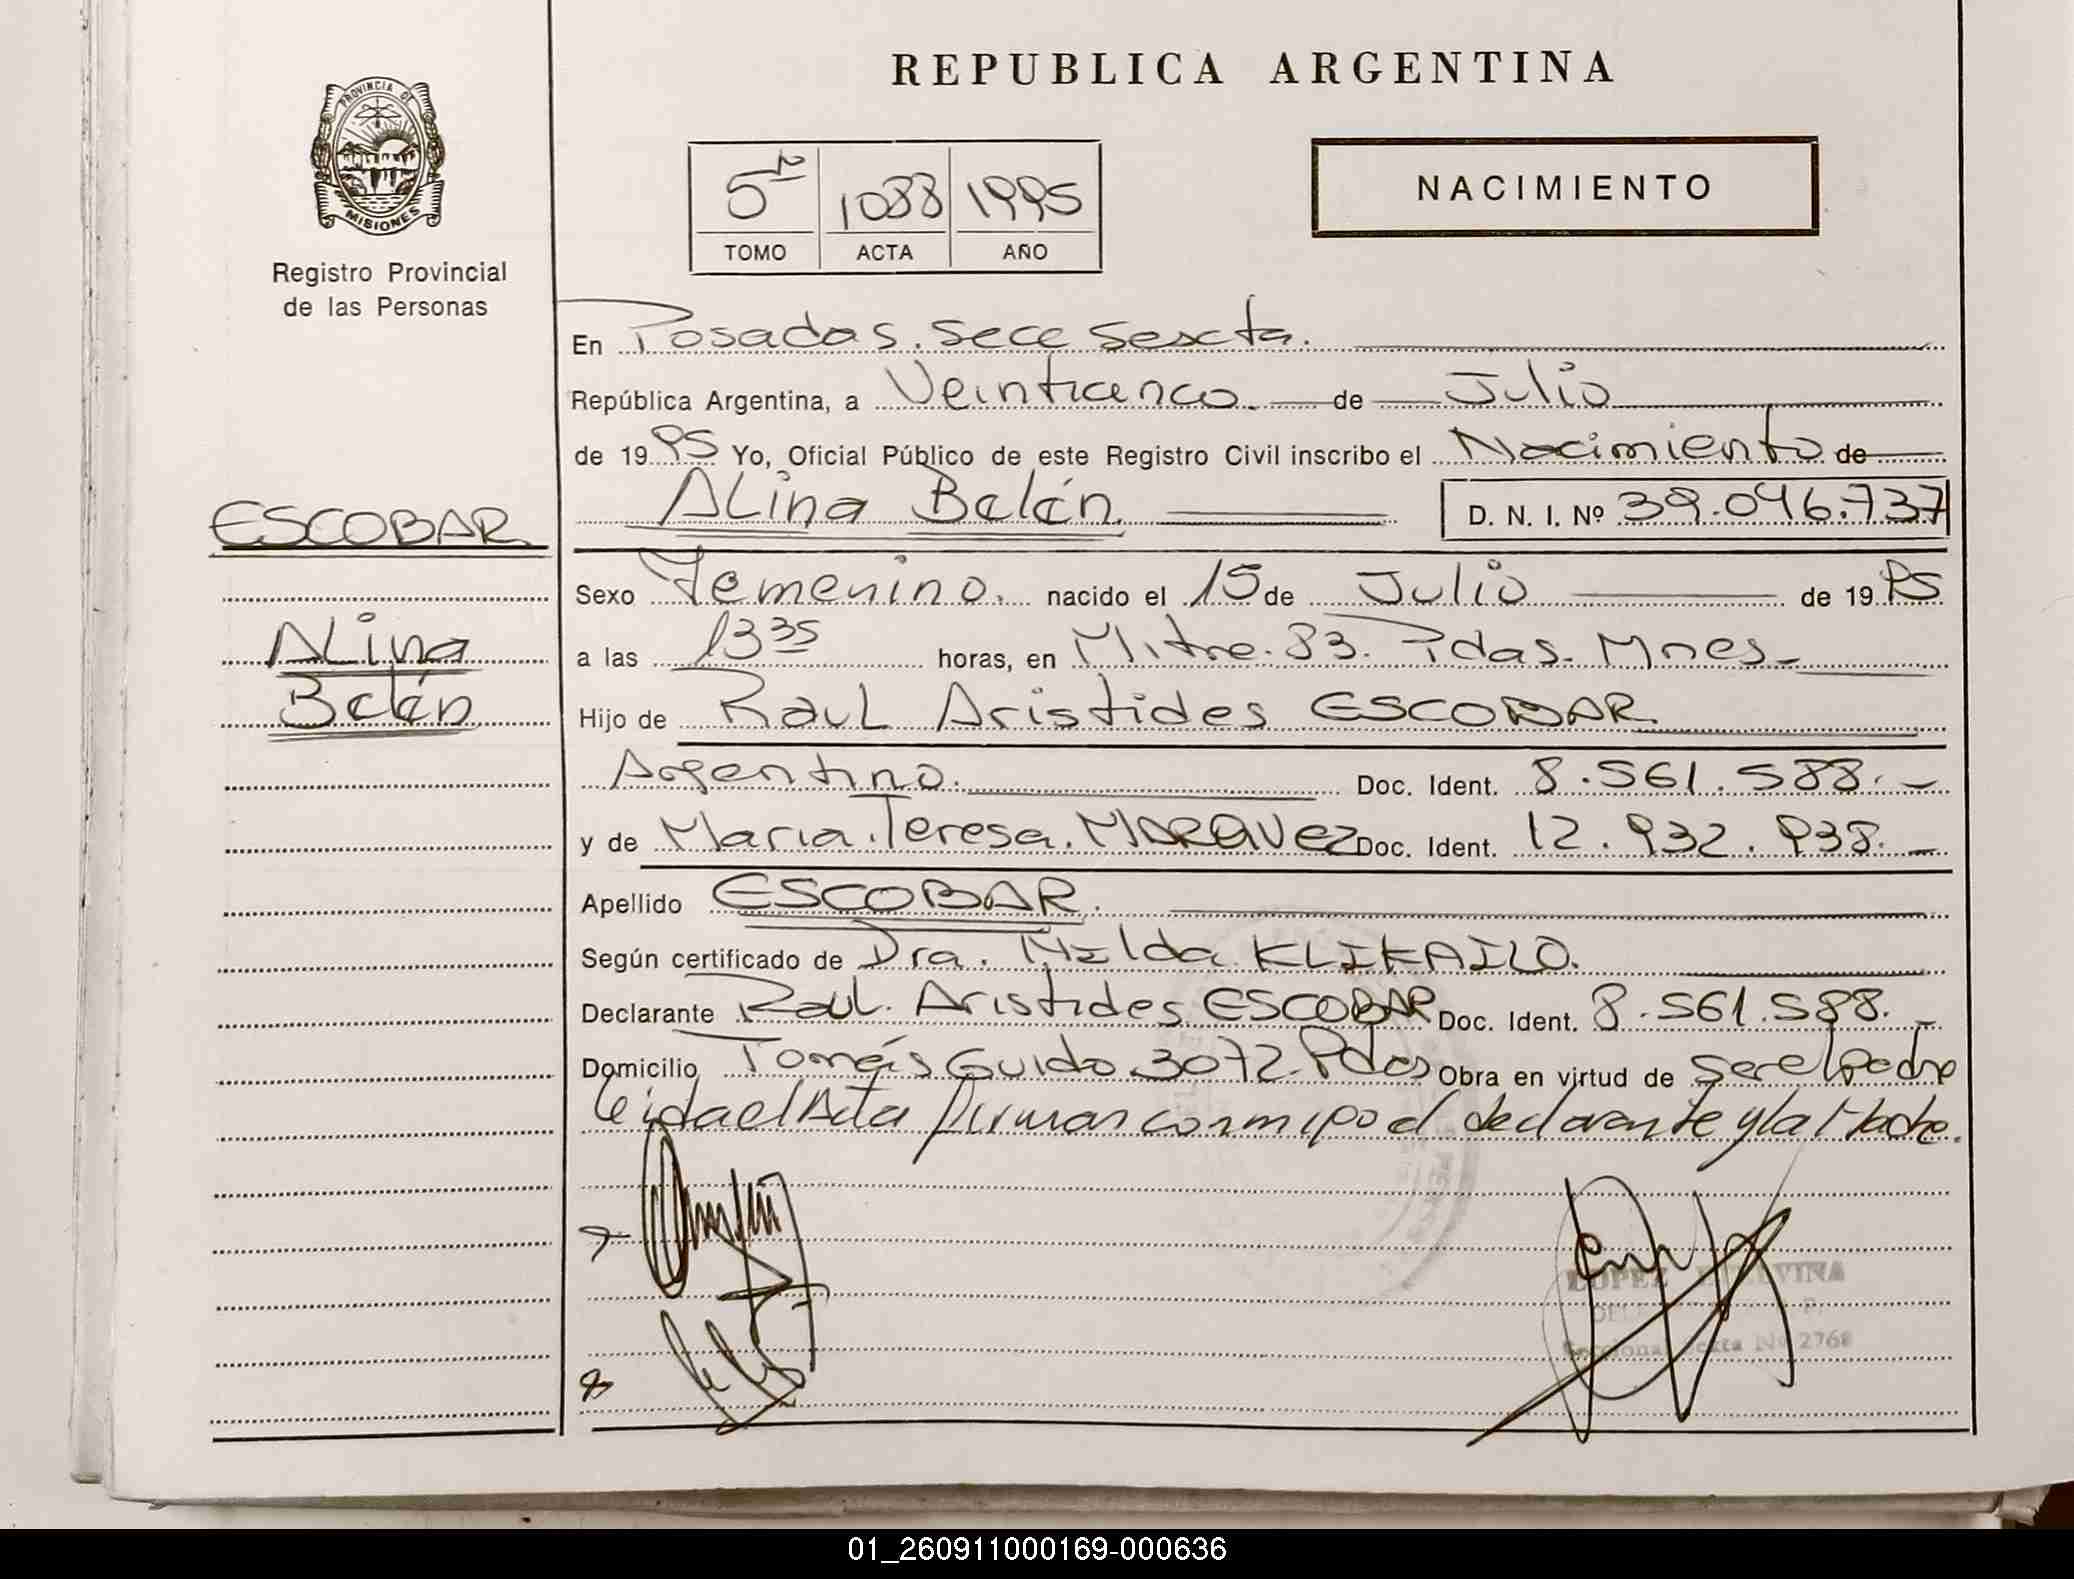 REPUBLICA ARGENTINA
PROVINCIA DE
MISIONES
Registro Provincial
de las Personas
5to 1088 1995
TOMO ACTA AÑO
NACIMIENTO
ESCOBAR
Alina
Belén
En Posadas. Secc Sexta.
República Argentina, a Veinticinco de Julio
de 1995 Yo, Oficial Público de este Registro Civil inscribo el Nacimiento de
Alina Belén D. N. I. Nº 39.046.737
Sexo Femenino. nacido el 15 de Julio de 1995
a las 13 35 horas, en Mitre. 83. Pdas. Mnes
Hijo de Raul Aristides ESCOBAR
Argentino. Doc. Ident. 8.561.588.
y de Maria Teresa. Doc. Ident. 12.932.938.
Apellido ESCOBAR.
Según certificado de Dra. KLIKAILO.
Declarante Raul Aristides ESCOBAR Doc. Ident. 8.561.588.
Domicilio Tomás Guido 3072 Pdas Obra en virtud de ser el padre
leida el Acta firman conmigo el declarante y la Madre.
LOPEZ
Seccional Sexta Nº 2768
01_260911000169-000636